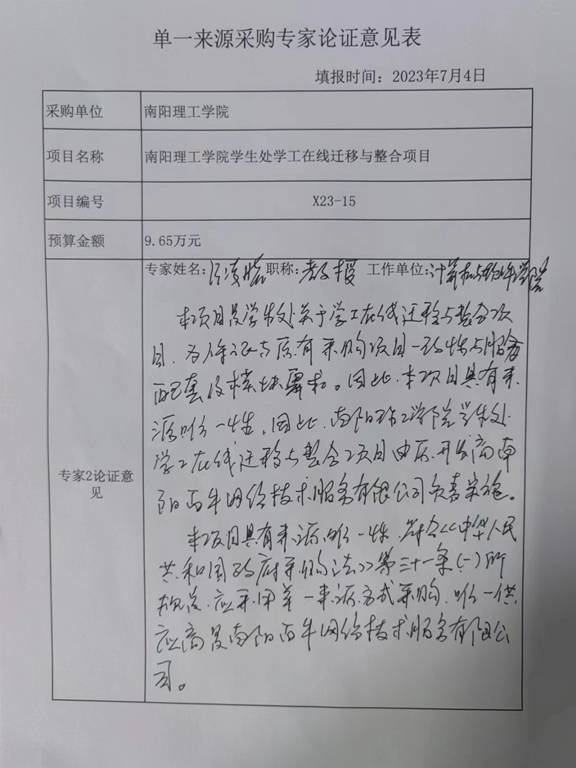 单一来源采购专家论证意见表
填报时间：2023年7月4日
采购单位 南阳理工学院
项目名称 南阳理工学院学生处学工在线迁移与整合项目
项目编号 X23-15
预算金额 9.65万元
专家姓名： 职称：教授 工作单位：计算机与软件学院
专家2论证意见
本项目是学生处关于学工在线迁移与整合项
目，为保证与原有采购项目一致性与服务
配套及模块要求。因此，本项目具有来
源唯一性，因此，南阳理工学院学生处
学工在线迁移与整合项目由原开发商南
阳 牛网络技术服务有限公司负责实施。
本项目具有来源唯一性，符合《中华人民
共和国政府采购法》第三十一条（一）所
规定，应采用单一来源方式采购，唯一供
应商是南阳 牛网络技术服务有限公
司。